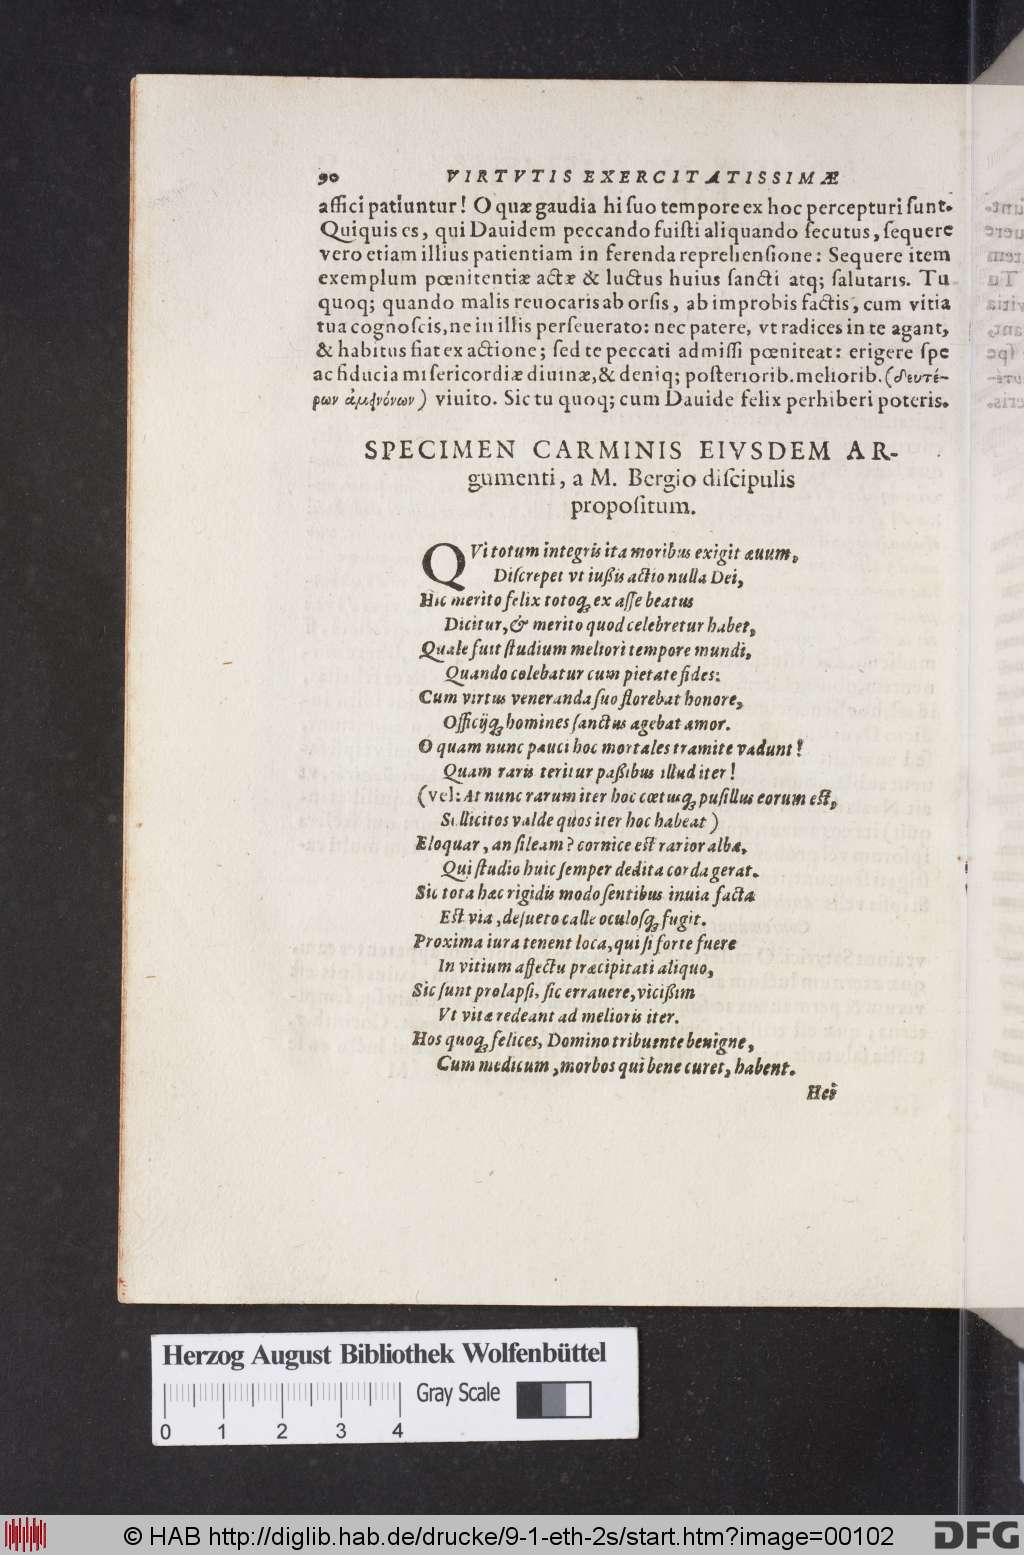 90 VIRTVTIS EXERCITATISSIMÆ
affici patiuntur! O quæ gaudia hi ſuo tempore ex hoc percepturi ſunt.
Quiquis es, qui Dauidem peccando fuiſti aliquando ſecutus, ſequere
vero etiam illius patientiam in ferenda reprehenſione: Sequere item
exemplum pœnitentiæ actæ & luctus huius ſancti atq; ſalutaris. Tu
quoq; quando malis reuocaris ab orſis, ab improbis factis, cum vitia
tua cognoſcis, ne in illis perſeuerato: nec patere, vt radices in te agant,
& habitus fiat ex actione; ſed te peccati admiſſi pœniteat: erigere ſpe
ac fiducia miſericordiæ diuinæ, & deniq; poſteriorib. meliorib. (δευτέ-
ρων ἀμεινόνων) viuito. Sic tu quoq; cum Dauide felix perhiberi poteris.
SPECIMEN CARMINIS EIVSDEM AR-
gumenti, a M. Bergio diſcipulis
propoſitum.
QVi totum integris ita moribus exigit æuum,
Diſcrepet vt iußis actio nulla Dei,
Hic merito felix totoq; ex aſſe beatus
Dicitur, & merito quod celebretur habet,
Quale fuit ſtudium meliori tempore mundi,
Quando colebatur cum pietate fides:
Cum virtus veneranda ſuo florebat honore,
Officijq; homines ſanctus agebat amor.
O quam nunc pauci hoc mortales tramite vadunt!
Quam raris teritur paßibus illud iter!
(vel: At nunc rarum iter hoc cœtusq; puſillus eorum eſt,
Sollicitos valde quos iter hoc habeat)
Eloquar, an ſileam? cornice eſt rarior alba,
Qui ſtudio huic ſemper dedita corda gerat.
Sic tota hæc rigidis modo ſentibus inuia facta
Eſt via, deſueto calle oculoſq; fugit.
Proxima iura tenent loca, qui ſi forte fuere
In vitium affectu præcipitati aliquo,
Sic ſunt prolapſi, ſic errauere, vicißim
Vt vitæ redeant ad melioris iter.
Hos quoq; felices, Domino tribuente benigne,
Cum medicum, morbos qui bene curet, habent.
Hei
Herzog August Bibliothek Wolfenbüttel
Gray Scale
0 1 2 3 4
© HAB http://diglib.hab.de/drucke/9-1-eth-2s/start.htm?image=00102
DFG